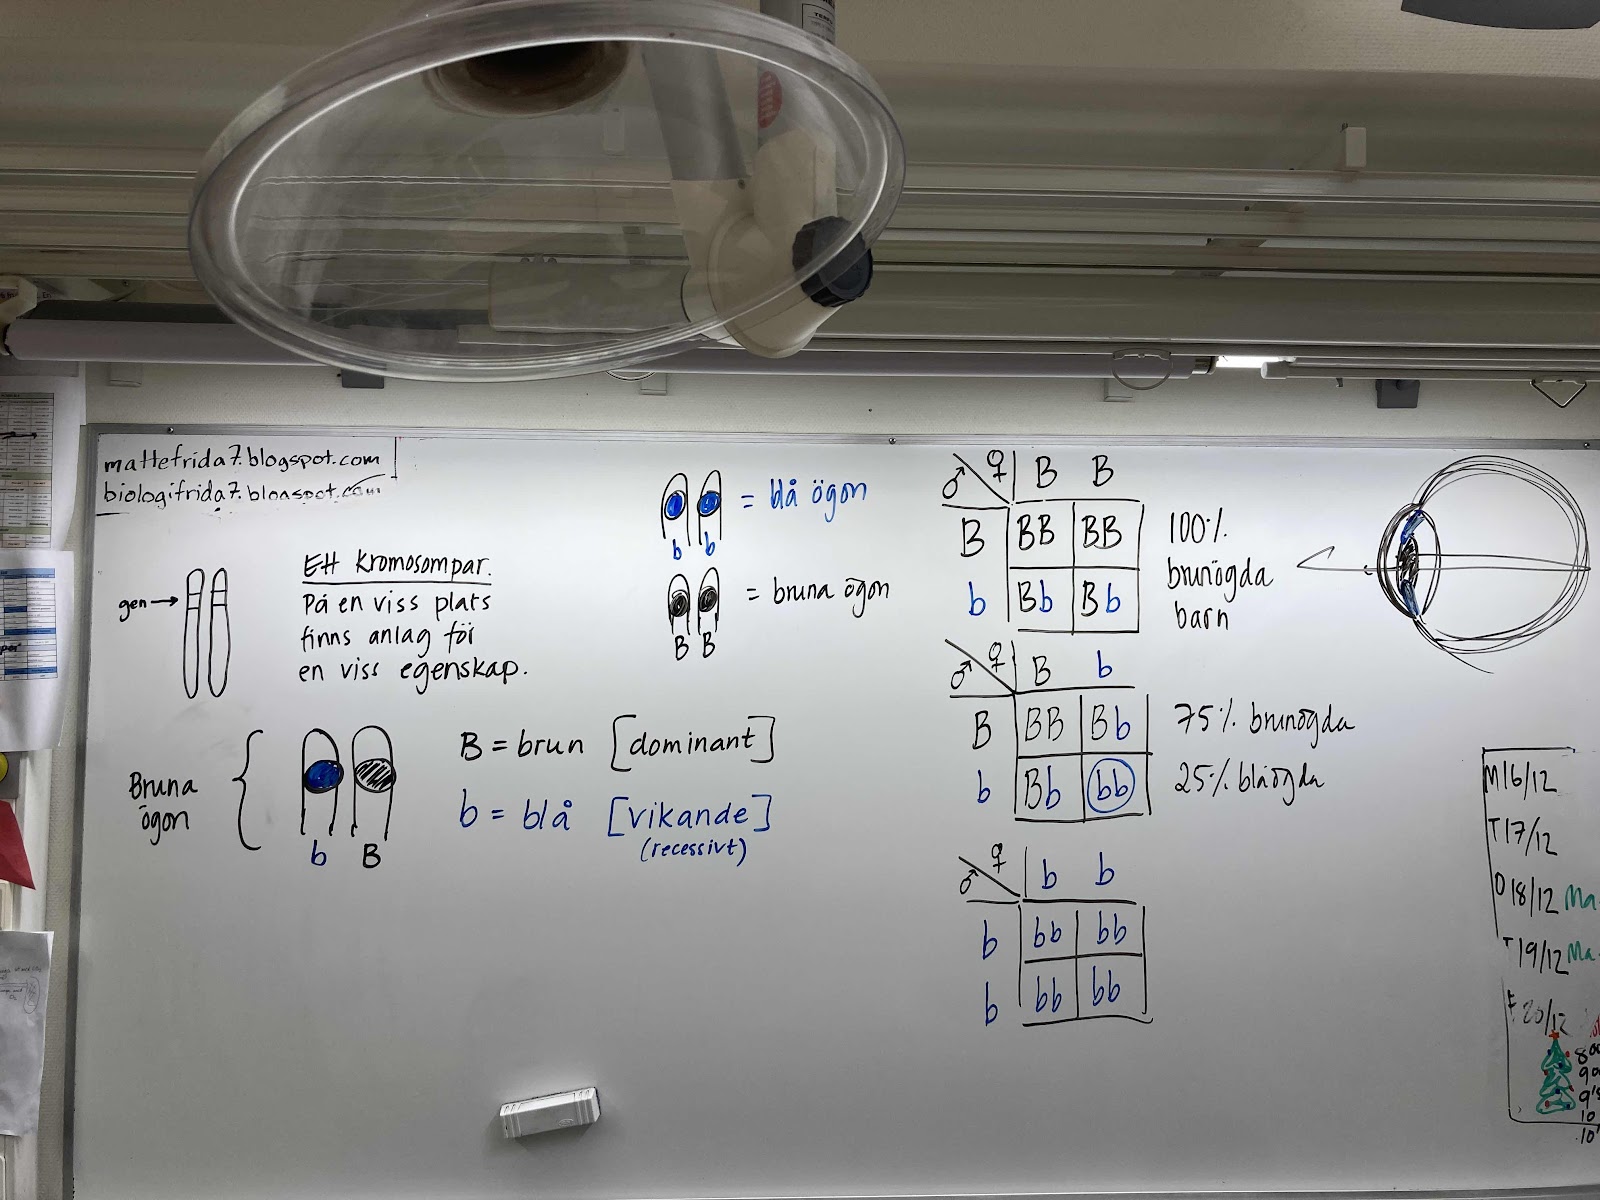 mattefrida7.blogspot.com
biologifrida7.blogspot.com
gen
Ett kromosompar.
På en viss plats
finns anlag för
en viss egenskap.
Bruna
ögon
b B
= blå ögon
b b
= bruna ögon
B B
B = brun [dominant]
b = blå [vikande]
(recessivt)
♂ ♀ B B
B BB BB
b Bb Bb
100%
brunögda
barn
♂ ♀ B b
B BB Bb
b Bb bb
75% brunögda
25% blåögda
♂ ♀ b b
b bb bb
b bb bb
M16/12
T17/12
O18/12 Ma
T19/12 Ma
F 20/12